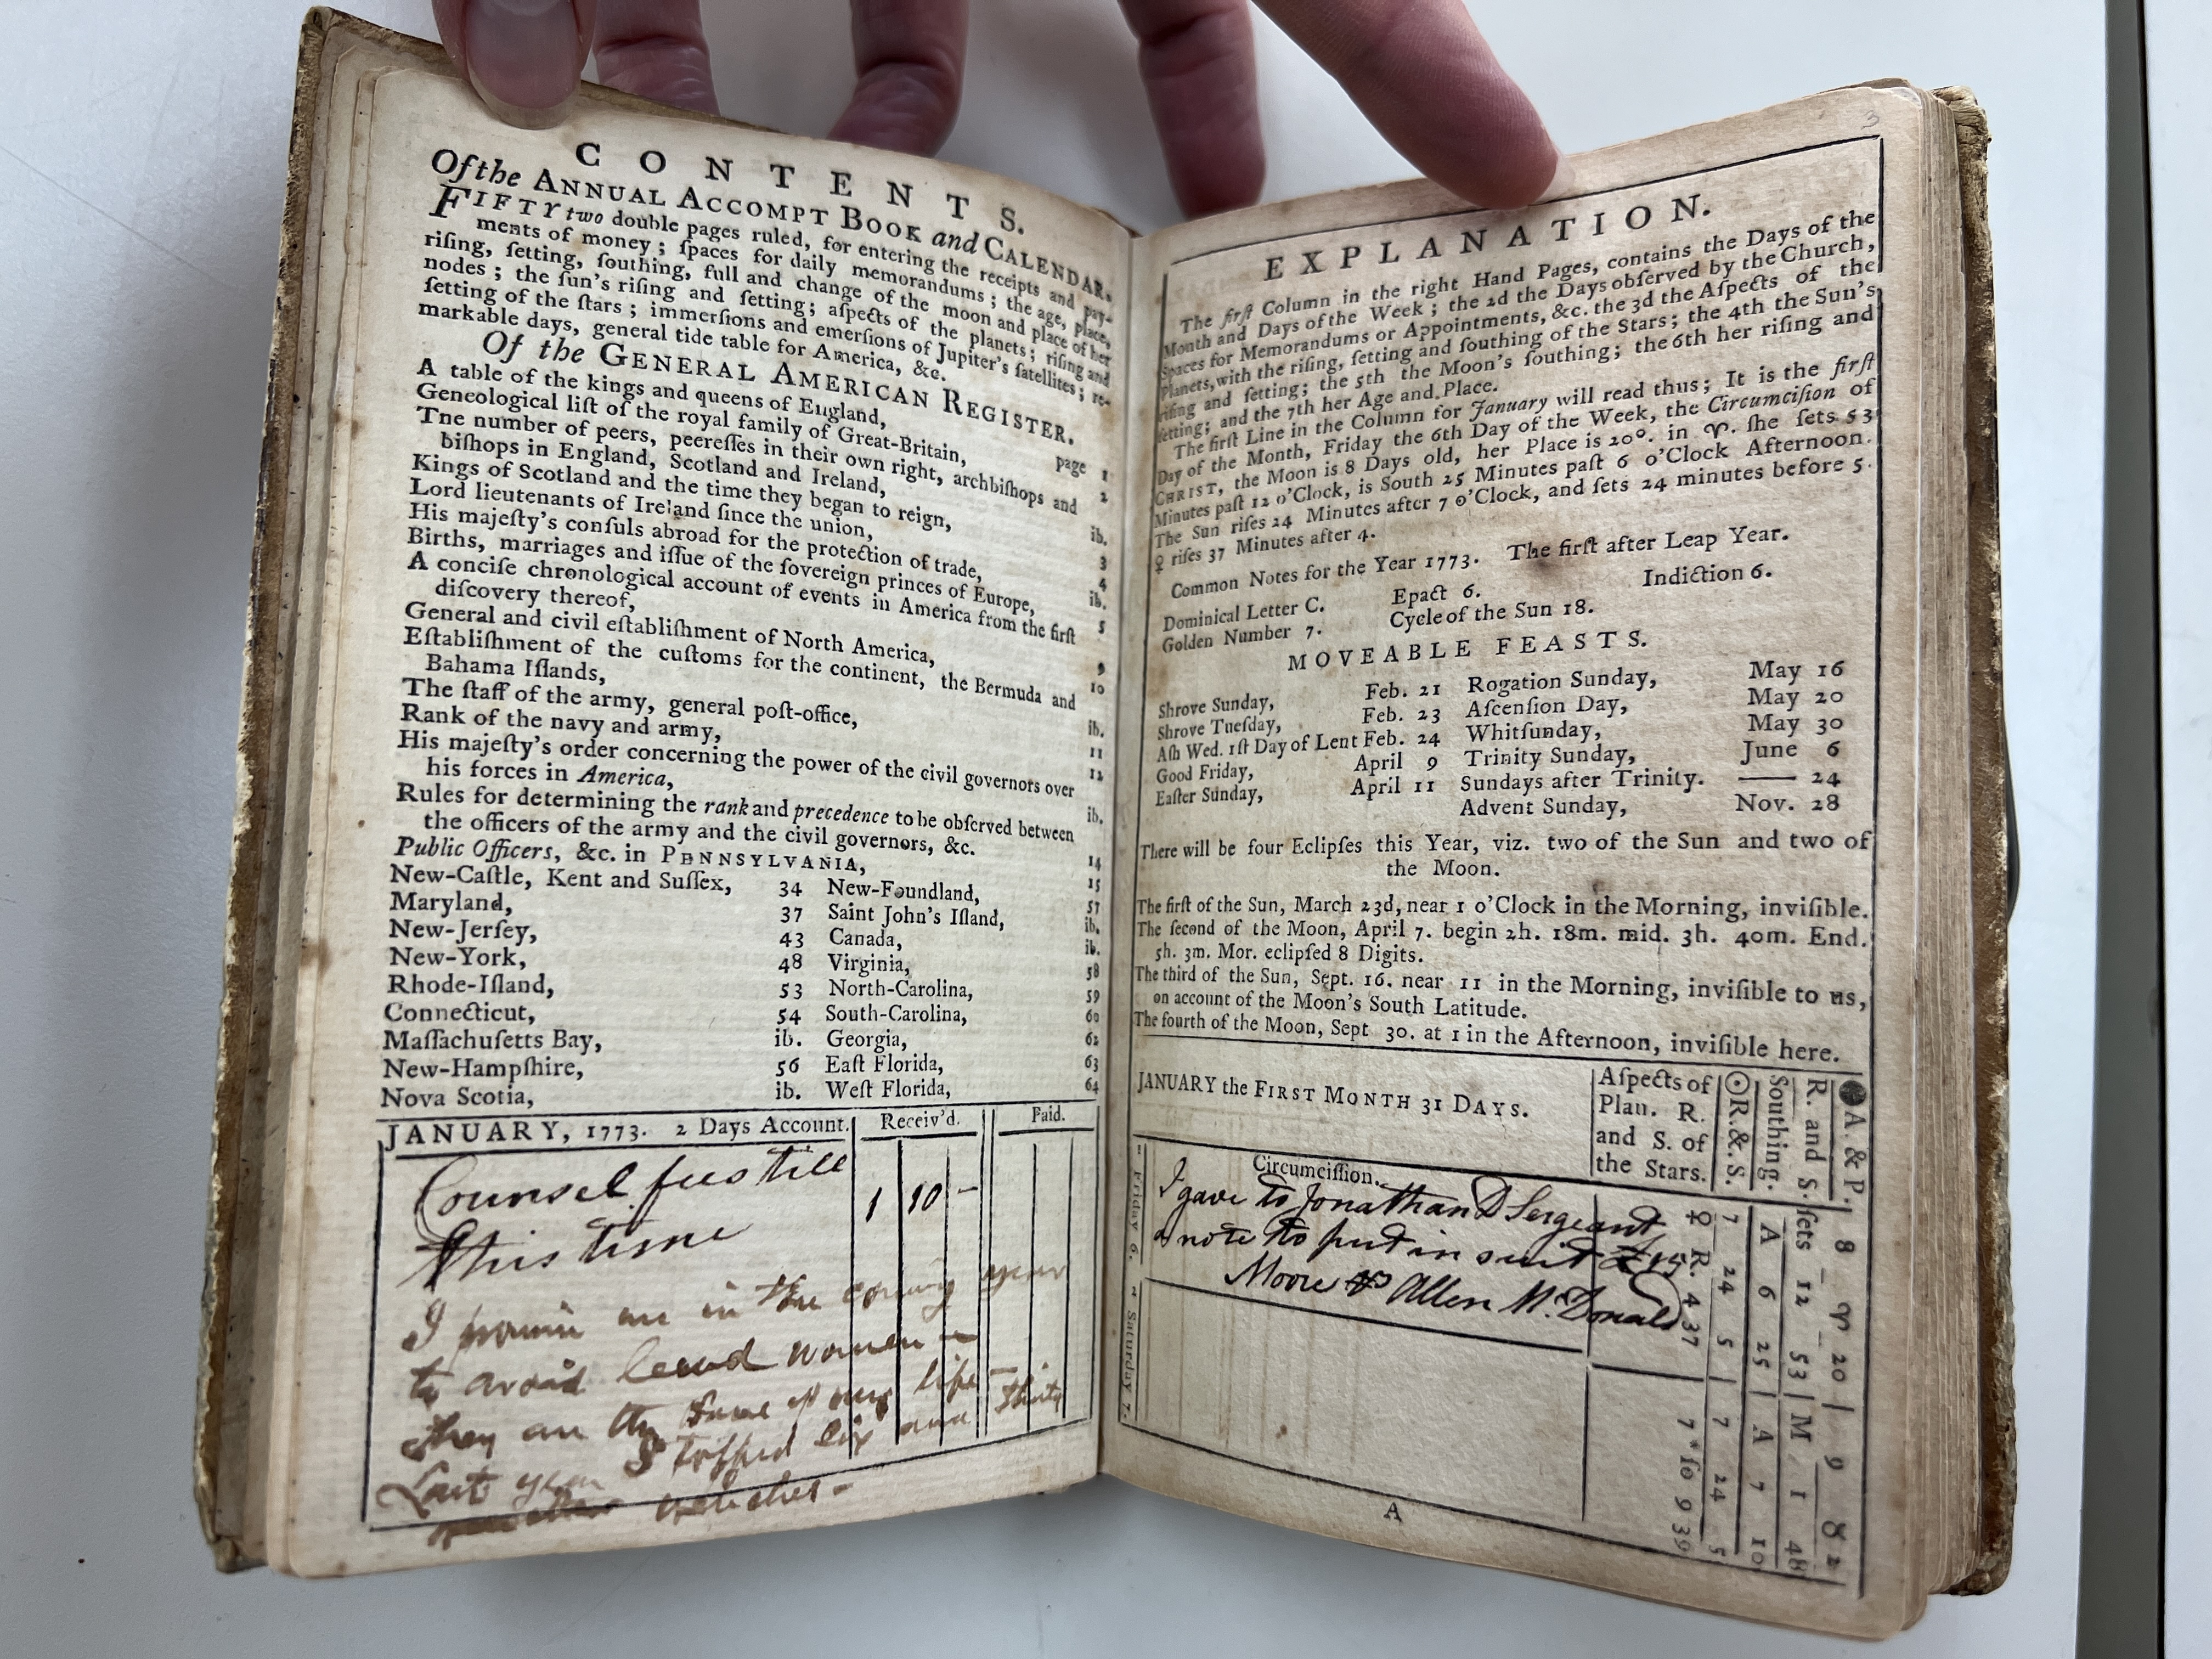 CONTENTS.
Of the ANNUAL ACCOMPT BOOK and CALENDAR.
FIFTY two double pages ruled, for entering the receipts and pay-
ments of money; ſpaces for daily memorandums; the age, place,
riſing, ſetting, ſouthing, full and change of the moon and place of her
nodes; the ſun's riſing and ſetting; aſpects of the planets; riſing and
ſetting of the ſtars; immerſions and emerſions of Jupiter's ſatellites; re-
markable days, general tide table for America, &c.
Of the GENERAL AMERICAN REGISTER.
A table of the kings and queens of England, page 1
Geneological liſt of the royal family of Great-Britain, 2
Tne number of peers, peereſſes in their own right, archbiſhops and
biſhops in England, Scotland and Ireland, ib.
Kings of Scotland and the time they began to reign, 3
Lord lieutenants of Ireland ſince the union, 4
His majeſty's conſuls abroad for the protection of trade, ib.
Births, marriages and iſſue of the ſovereign princes of Europe, 5
A conciſe chronological account of events in America from the firſt
diſcovery thereof, 9
General and civil eſtabliſhment of North America, 10
Eſtabliſhment of the cuſtoms for the continent, the Bermuda and
Bahama Iſlands, ib.
The ſtaff of the army, general poſt-office, 11
Rank of the navy and army, 12
His majeſty's order concerning the power of the civil governors over
his forces in America, ib.
Rules for determining the rank and precedence to be obſerved between
the officers of the army and the civil governors, &c. 14
Public Officers, &c. in PENNSYLVANIA, 15
New-Caſtle, Kent and Suſſex, 34 New-Foundland, 57
Maryland, 37 Saint John's Iſland, ib.
New-Jerſey, 43 Canada, ib.
New-York, 48 Virginia, 58
Rhode-Iſland, 53 North-Carolina, 59
Connecticut, 54 South-Carolina, 60
Maſſachuſetts Bay, ib. Georgia, 62
New-Hampſhire, 56 Eaſt Florida, 63
Nova Scotia, ib. Weſt Florida, 64
JANUARY, 1773. 2 Days Account. Receiv'd. Paid.
Counsel fees till 1 10 -
this time
I promise me in the coming year
to avoid lewd women -
they are the bane of my life -
Last year I topped six and thirty
bitches -
3
EXPLANATION.
The firſt Column in the right Hand Pages, contains the Days of the
Month and Days of the Week; the 2d the Days obſerved by the Church,
Spaces for Memorandums or Appointments, &c. the 3d the Aſpects of the
Planets, with the riſing, ſetting and ſouthing of the Stars; the 4th the Sun's
riſing and ſetting; the 5th the Moon's ſouthing; the 6th her riſing and
ſetting; and the 7th her Age and Place.
The firſt Line in the Column for January will read thus; It is the firſt
Day of the Month, Friday the 6th Day of the Week, the Circumciſion of
CHRIST, the Moon is 8 Days old, her Place is 20°. in ♈. ſhe ſets 53
Minutes paſt 12 o'Clock, is South 25 Minutes paſt 6 o'Clock Afternoon.
The Sun riſes 24 Minutes after 7 o'Clock, and ſets 24 minutes before 5.
♀ riſes 37 Minutes after 4.
Common Notes for the Year 1773. The firſt after Leap Year.
Dominical Letter C. Epact 6. Indiction 6.
Golden Number 7. Cycle of the Sun 18.
MOVEABLE FEASTS.
Shrove Sunday, Feb. 21 Rogation Sunday, May 16
Shrove Tueſday, Feb. 23 Aſcenſion Day, May 20
Aſh Wed. 1ſt Day of Lent Feb. 24 Whitſunday, May 30
Good Friday, April 9 Trinity Sunday, June 6
Eaſter Sunday, April 11 Sundays after Trinity. —— 24
Advent Sunday, Nov. 28
There will be four Eclipſes this Year, viz. two of the Sun and two of
the Moon.
The firſt of the Sun, March 23d, near 1 o'Clock in the Morning, inviſible.
The ſecond of the Moon, April 7. begin 2h. 18m. mid. 3h. 40m. End.
5h. 3m. Mor. eclipſed 8 Digits.
The third of the Sun, Sept. 16. near 11 in the Morning, inviſible to us,
on account of the Moon's South Latitude.
The fourth of the Moon, Sept 30. at 1 in the Afternoon, inviſible here.
JANUARY the FIRST MONTH 31 DAYS.
Aſpects of
Plan. R.
and S. of
the Stars.
☉ R.&.S.
Southing.
R. and S.
● A. & P.
1 Friday 6.
Circumciſſion.
I gave to Jonathan D Sergeant
a note to put in suit
Moore vs Allen McDonald
♀ R. 4 37
7 24 5
A 6 25
ſets 12 53
8 ♈ 20
2 Saturday 7.
7*ſo 9 39
7 24 5
A 7 10
M 1 48
9 ♉ 2
A